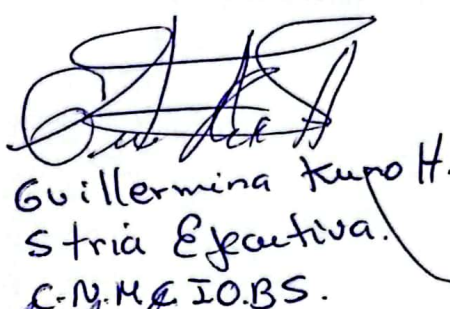 Guillermina Kuno H.
Stria Ejecutiva.
C.N.M.C.I.O.B.S.